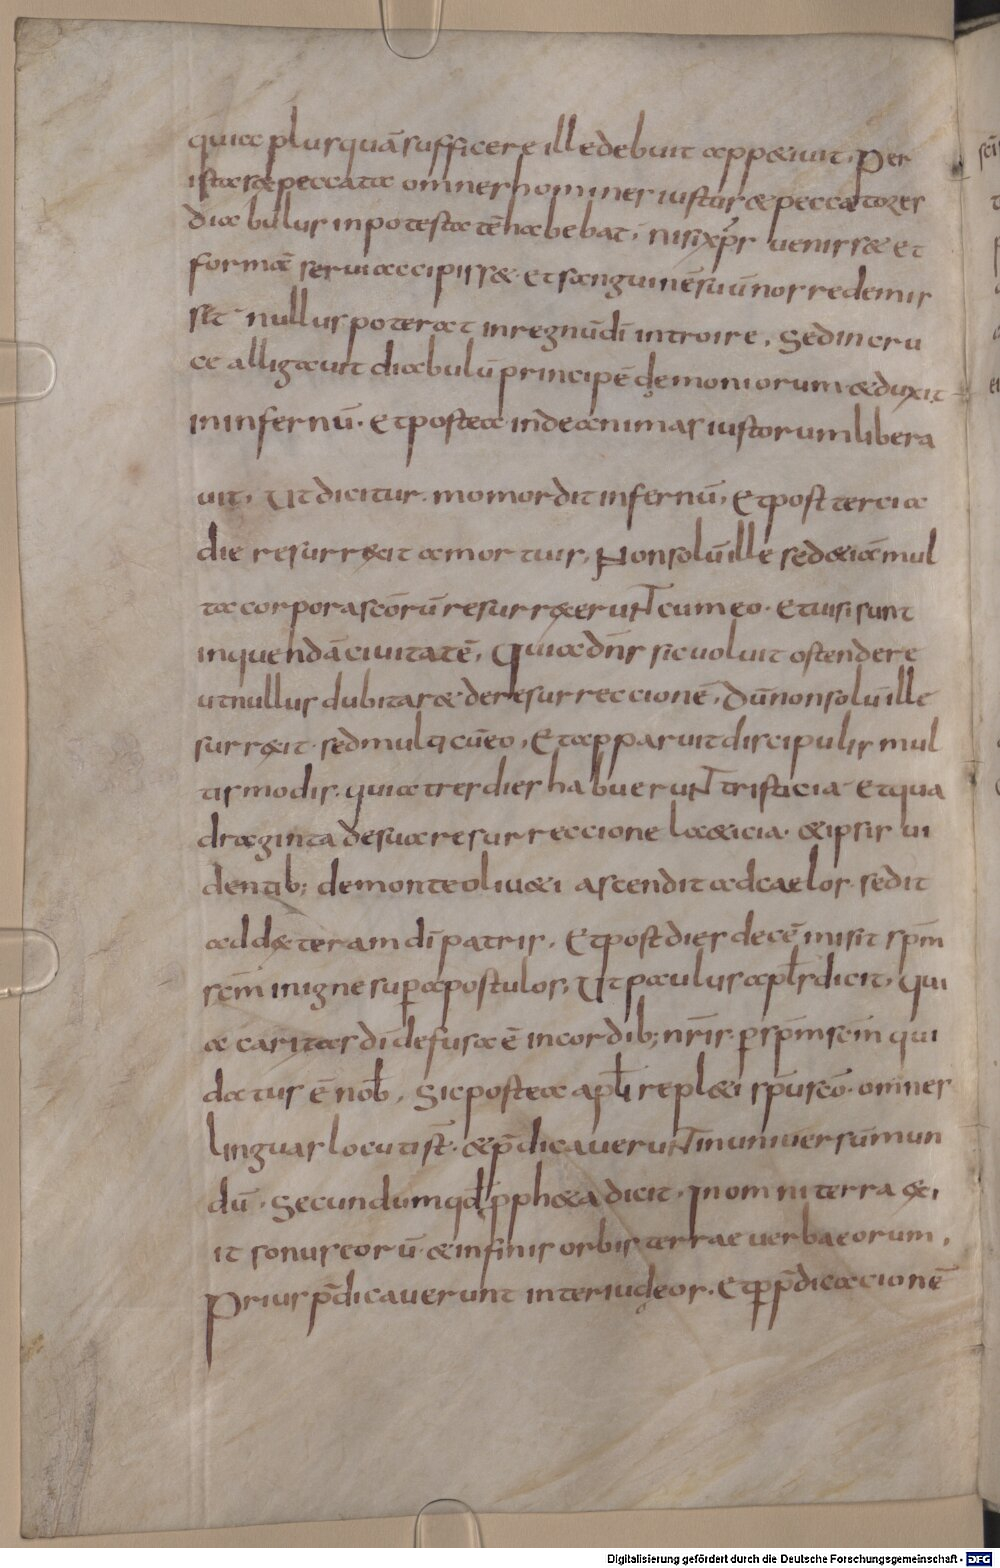 quia plus quā sufficere ille debuit appetiuit. Per
ista sæ peccata omnes homines iustus & peccatores
diabulus in potestatē habebat; nisi xp̄s venissæ et
formā serui accipissæ. Et sanguinē suū nos redemis
sit nullus poterat in regnū dī introire. Sed in cru
ce alligauit diabulū principē dęmoniorum & duxit
in infernū. Et postea inde animas iustorum libera
uit. Ut dicitur. momordit infernū. Et post tercia
die resurrexit a mortuis. Non solū ille sed & iā mul
ta corpora scōrū resurrexerunt cum eo. Et uisi sunt
in quendā ciuitatē. Quia dn̄s sic uoluit ostendere
ut nullus dubitar& de resurreccionē. Dū non solū ille
surrexit. sed multi cū eo. Et apparuit discipulis mul
tis modis. quia tres dies habuerunt tristicia Et qua
draginta de sua resurreccione læticia. & ipsis ui
dentib; de monte oliueti ascendit ad caelos. sedit
ad dexteram dī patris. Et post dies decē misit sp̄m
sc̄m in igne sup apostulos; Ut paulus apl̄s dicit. Qui
a caritas dī defusa ē in cordib; nr̄is. p sp̄m sc̄m qui
datus ē nob̄. Sic postea apl̄i repleti sp̄u scō. omnes
linguas locuti st̄. & p̄dicauerunt in uniuersū mun
dū. Secundum qd p̄pheta dicit. In omni terra exi
it sonus eorū & in finis orbis terrae uerba eorum.
Prius p̄dicauerunt inter iudęos. Et p p̄dicacionē
Digitalisierung gefördert durch die Deutsche Forschungsgemeinschaft - DFG